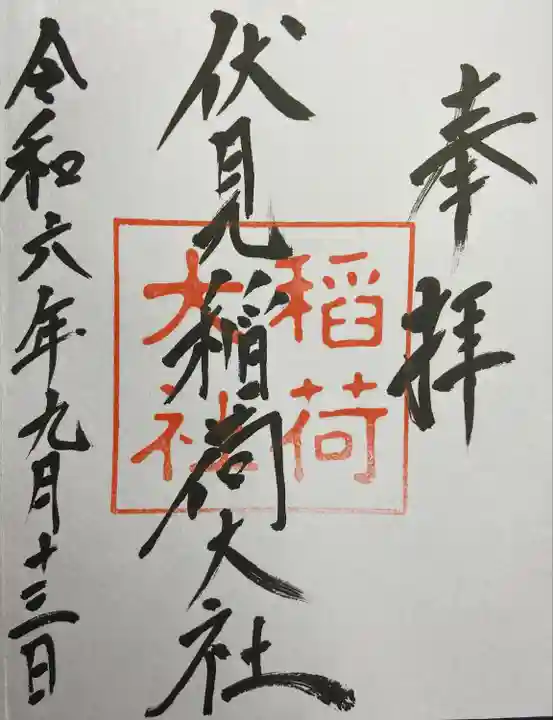 奉拝
稲荷
大社
伏見稲荷大社
令和六年九月十三日